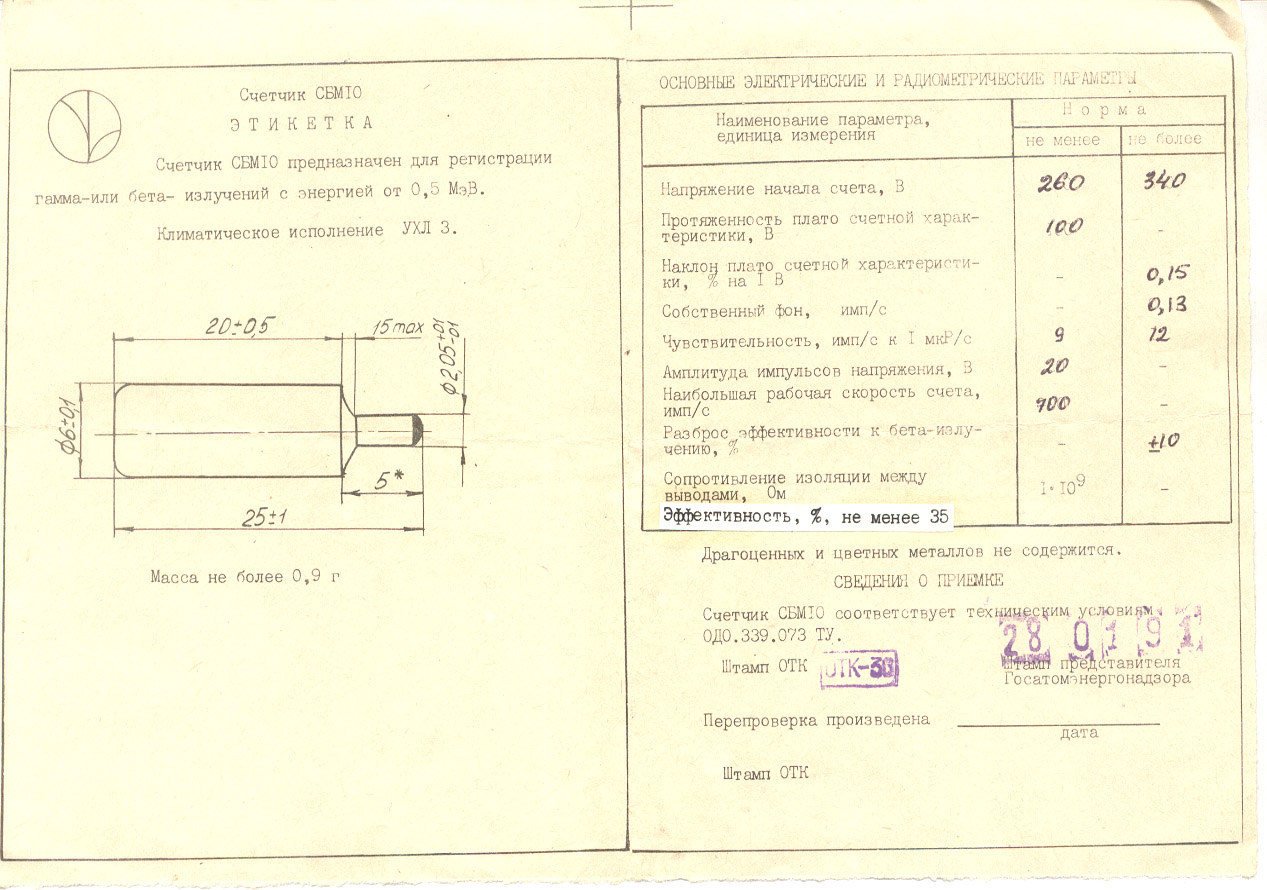 Счетчик СБМ10
ЭТИКЕТКА
Счетчик СБМ10 предназначен для регистрации
гамма-или бета- излучений с энергией от 0,5 МэВ.
Климатическое исполнение УХЛ 3.
20±0,5
15max
ф2,05+0,1-0,1
ф6±0,1
5*
25±1
Масса не более 0,9 г
ОСНОВНЫЕ ЭЛЕКТРИЧЕСКИЕ И РАДИОМЕТРИЧЕСКИЕ ПАРАМЕТРЫ
Наименование параметра,
единица измерения
Норма
не менее
не более
Напряжение начала счета, В 260 340
Протяженность плато счетной харак-
теристики, В 100 -
Наклон плато счетной характеристи-
ки, % на 1 В - 0,15
Собственный фон, имп/с - 0,13
Чувствительность, имп/с к 1 мкР/с 9 12
Амплитуда импульсов напряжения, В 20 -
Наибольшая рабочая скорость счета,
имп/с 700 -
Разброс эффективности к бета-излу-
чению, % - ±10
Сопротивление изоляции между
выводами, Ом 1·10⁹ -
Эффективность, %, не менее 35
Драгоценных и цветных металлов не содержится.
СВЕДЕНИЯ О ПРИЕМКЕ
Счетчик СБМ10 соответствует техническим условиям
ОДО.339.073 ТУ.
28 01 91
Штамп ОТК
ОТК-30
Штамп представителя
Госатомэнергонадзора
Перепроверка произведена
дата
Штамп ОТК